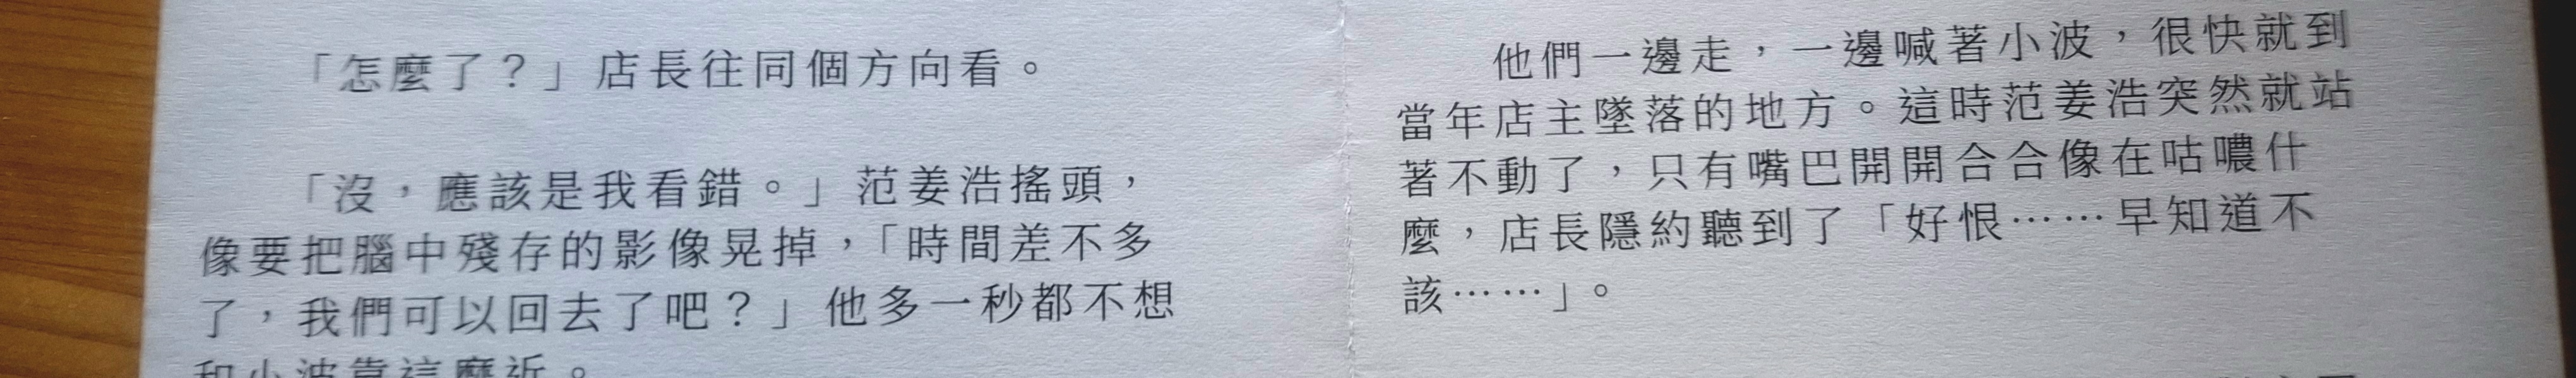 「怎麼了？」店長往同個方向看。
「沒，應該是我看錯。」范姜浩搖頭，
像要把腦中殘存的影像晃掉，「時間差不多
了，我們可以回去了吧？」他多一秒都不想
和小波靠這麼近。
他們一邊走，一邊喊著小波，很快就到
當年店主墜落的地方。這時范姜浩突然就站
著不動了，只有嘴巴開開合合像在咕噥什
麼，店長隱約聽到了「好恨⋯⋯早知道不
該⋯⋯」。